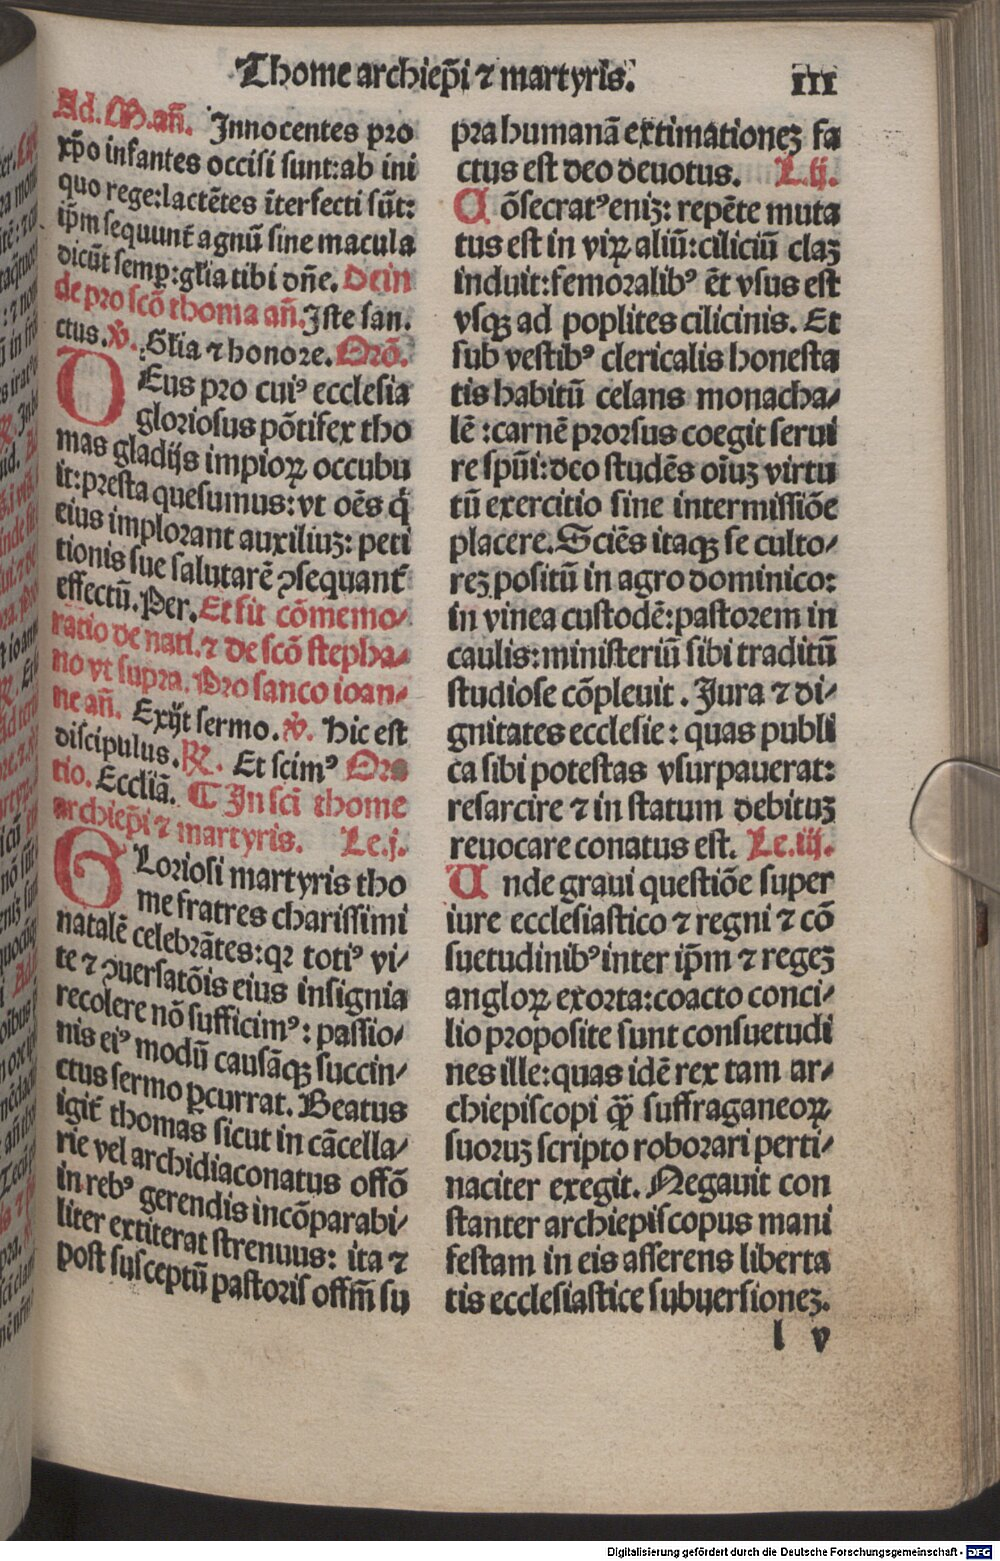 Thome archiep̃i ⁊ martyris.
III
Ad. M. añ. Innocentes pro
xp̃o infantes occisi sunt:ab ini
quo rege:lactẽtes ĩterfecti sũt:
ip̃m sequunt̃ agnũ sine macula
dicũt semꝑ:gl̃ia tibi dñe. Dein
de pro scõ thoma añ. Iste san.
ctus. ℣. Gl̃ia ⁊ honore. Orõ.
DEus pro cuiꝰ ecclesia
gloriosus põtifex tho
mas gladijs impioꝝ occubu
it:presta quesumus:vt oẽs q̃
eius implorant auxiliuꝫ: peti
tionis sue salutarẽ ꝯsequant̃
effectũ. Per. Et sit cõmemo⸗
ratio de nati. ⁊ de scõ stepha⸗
no vt supra. Pro sanco ioan⸗
ne añ. Exijt sermo. ℣. Hic est
discipulus. ℟. Et scimꝰ Ora
tio. Ecclĩa. ¶ In sci thome
archiep̃i ⁊ martyris. Le.j.
GLoriosi martyris tho
me fratres charissimi
natalẽ celebrãtes:qꝛ totiꝰ vi⸗
te ⁊ ꝯuersatõis eius insignia
recolere nõ sufficimꝰ: passio⸗
nis eiꝰ modũ causãqꝫ succin⸗
ctus sermo ꝑcurrat. Beatus
igit̃ thomas sicut in cãcella⸗
rie vel archidiaconatus offõ
in rebꝰ gerendis incõparabi⸗
liter extiterat strenuus: ita ⁊
post susceptũ pastoris offm̃ su
pra humanã extimationeꝫ fa
ctus est deo deuotus. L.ij.
Cõsecratꝰ eniꝫ: repẽte muta
tus est in viꝝ aliũ:ciliciũ claꝫ
induit:femoralibꝰ ẽt vsus est
vsqꝫ ad poplites cilicinis. Et
sub vestibꝰ clericalis honesta
tis habitũ celans monacha⸗
lẽ :carnẽ prorsus coegit serui
re spũi:deo studẽs oĩuꝫ virtu
tũ exercitio sine intermissiõe
placere. Sciẽs itaqꝫ se culto⸗
reꝫ positũ in agro dominico:
in vinea custodẽ:pastorem in
caulis:ministeriũ sibi traditũ
studiose cõpleuit . Jura ⁊ di⸗
gnitates ecclesie: quas publi
ca sibi potestas vsurpauerat:
resarcire ⁊ in statum debituꝫ
reuocare conatus est. Le.iij.
Unde graui questiõe super
iure ecclesiastico ⁊ regni ⁊ cõ
suetudinibꝰ inter ip̃m ⁊ regeꝫ
angloꝝ exorta:coacto conci⸗
lio proposite sunt consuetudi
nes ille:quas idẽ rex tam ar⸗
chiepiscopi qꝙ̃ suffraganeoꝝ
suoruꝫ scripto roborari perti⸗
naciter exegit. Negauit con
stanter archiepiscopus mani
festam in eis asserens liberta
tis ecclesiastice subuersioneꝫ.
l v
Digitalisierung gefördert durch die Deutsche Forschungsgemeinschaft - DFG